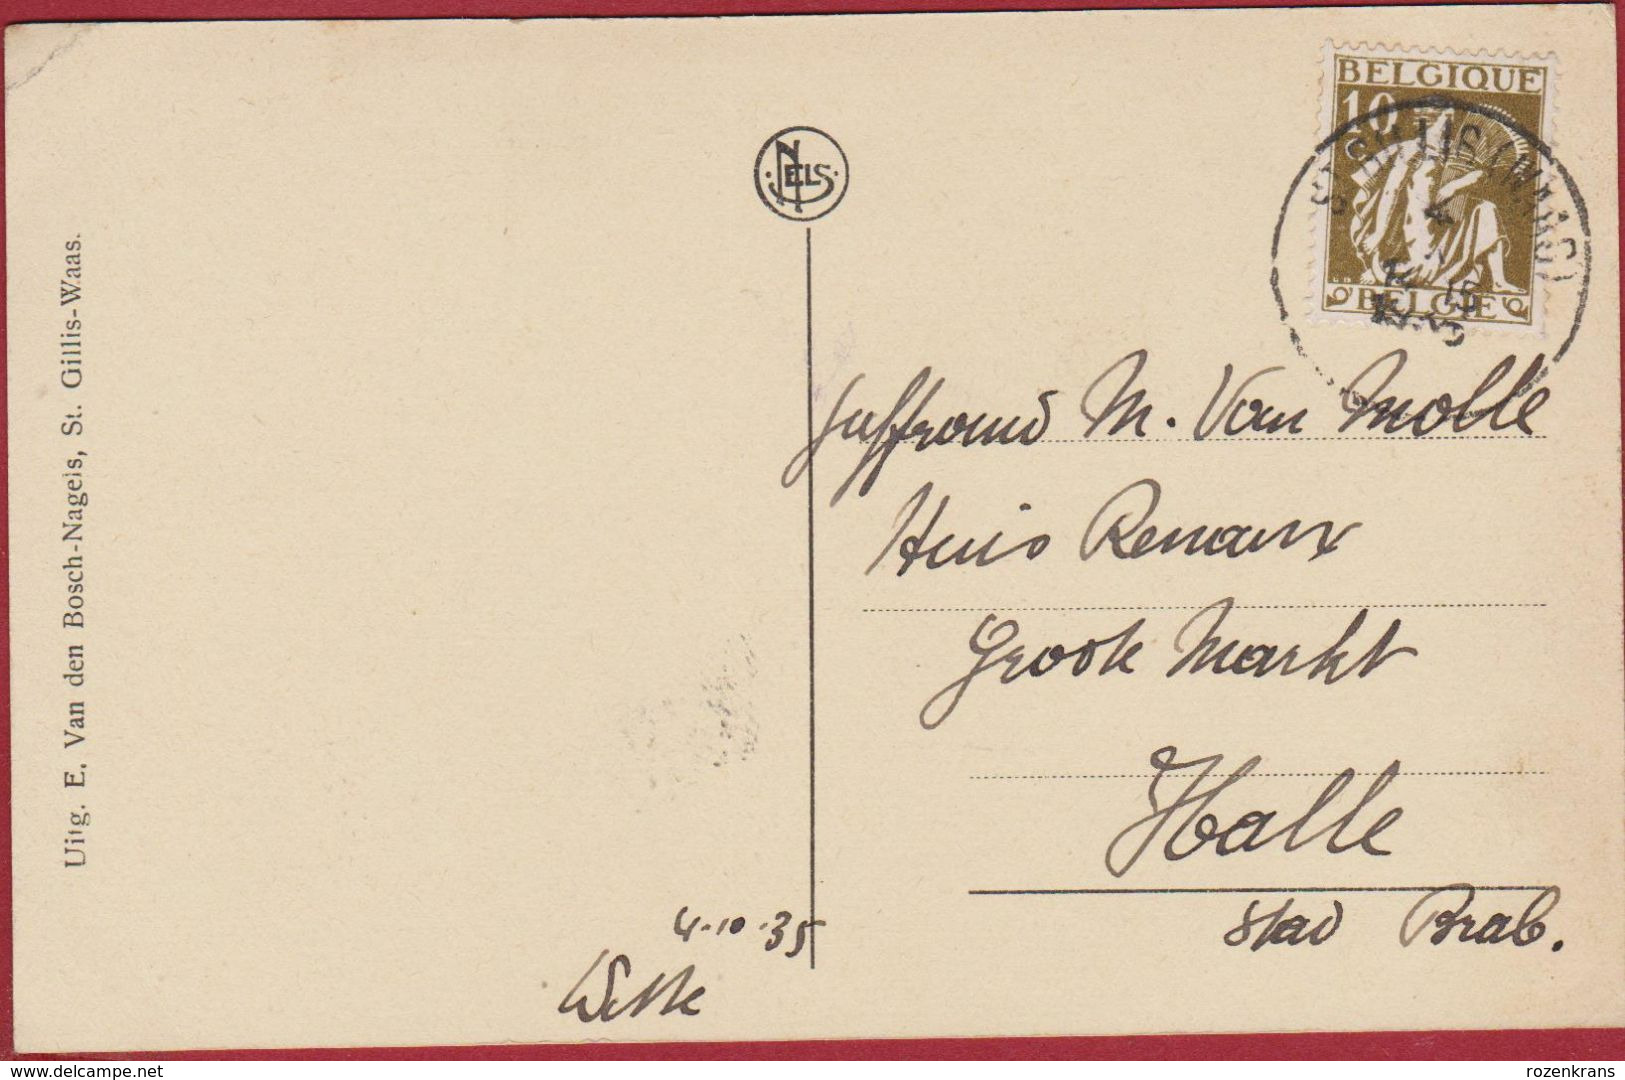 BELGIQUE
10
BELGIE
NELS
Uitg. E. Van den Bosch-Nagels, St. Gillis-Waas.
Juffrouw M. Van Molle
Huis Renaux
Groote Markt
Halle
Stad Brab.
4-10-35
delcampe.net
rozenkrans